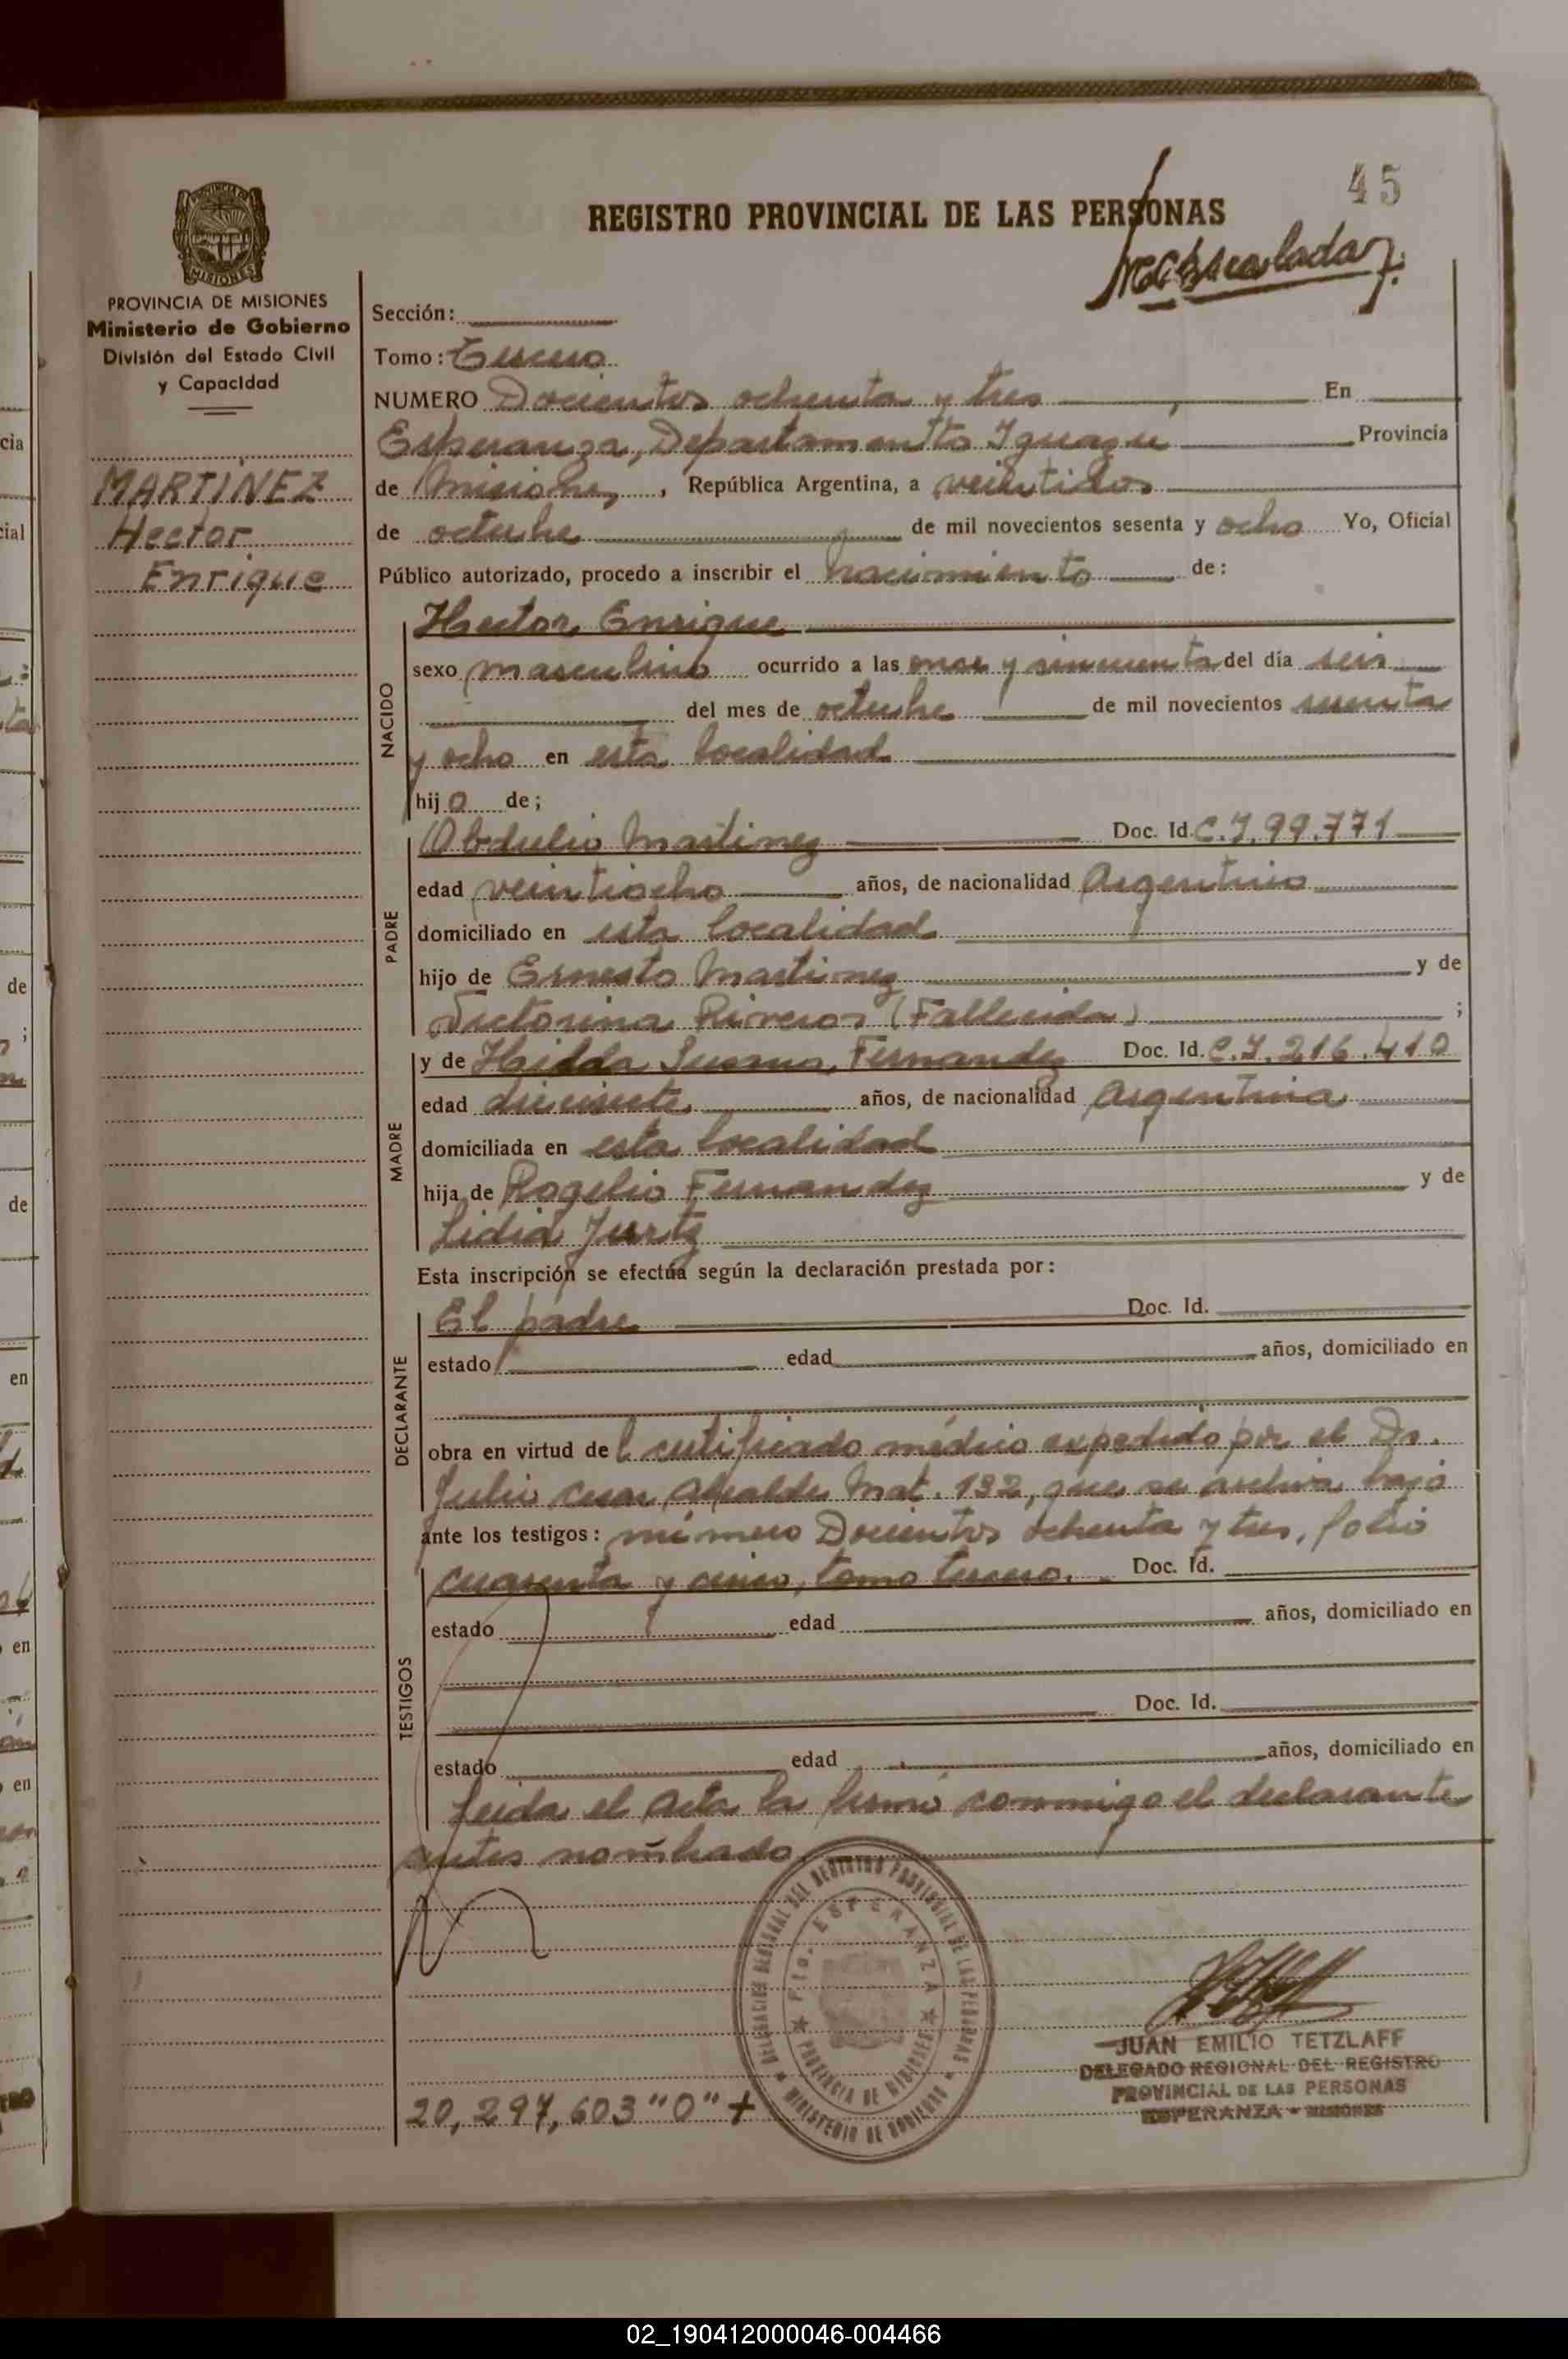 45
REGISTRO PROVINCIAL DE LAS PERSONAS
PROVINCIA DE MISIONES
Ministerio de Gobierno
División del Estado Civil
y Capacidad
MARTINEZ
Hector
Enrique
Sección:
Tomo: Tercero
NUMERO Docientos ochenta y tres En
Esperanza, Departamentto Iguazú Provincia
de Misiones, República Argentina, a veintidos
de octubre de mil novecientos sesenta y ocho Yo, Oficial
Público autorizado, procedo a inscribir el nacimiento de:
NACIDO
Hector Enrique
sexo masculino ocurrido a las once y sincuenta del día seis
del mes de octubre de mil novecientos sesenta
y ocho en esta localidad
hijo de;
PADRE
Obdulio Martinez Doc. Id. C.I. 99.771
edad veintiocho años, de nacionalidad Argentino
domiciliado en esta localidad
hijo de Ernesto Martinez y de
Victorina Riveros (Fallecida) ;
MADRE
y de Hilda Susana Fernandez Doc. Id. C.I. 216.410
edad diecisiete años, de nacionalidad Argentina
domiciliada en esta localidad
hija de Rogelio Fernandez y de
Lidia
Esta inscripción se efectúa según la declaración prestada por:
DECLARANTE
El padre Doc. Id.
estado edad años, domiciliado en
obra en virtud del certificado médico expedido por el Dr.
Julio Cesar Mat. 132, que se archiva bajo
ante los testigos: número Docientos ochenta y tres, folio
TESTIGOS
cuarenta y cinco, tomo tercero. Doc. Id.
estado edad años, domiciliado en
Doc. Id.
estado edad años, domiciliado en
Leida el Acta la firmó conmigo el declarante
antes nombrado
DELEGACION REGIONAL DEL REGISTRO PROVINCIAL DE LAS PERSONAS
Pto. ESPERANZA
PROVINCIA DE MISIONES
MINISTERIO DE GOBIERNO
JUAN EMILIO TETZLAFF
DELEGADO REGIONAL DEL REGISTRO
PROVINCIAL DE LAS PERSONAS
ESPERANZA - MISIONES
20,297,603 "O" +
02_190412000046-004466